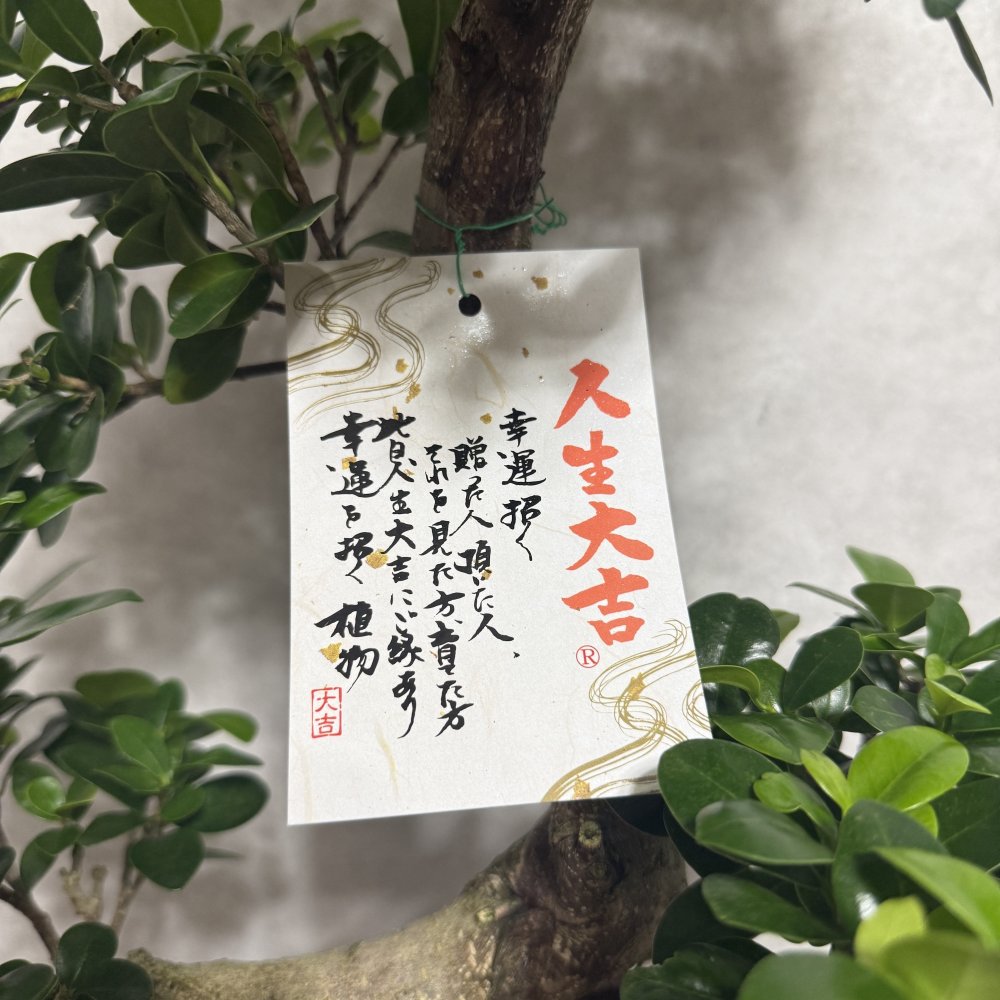 人生大吉®
幸運招く
贈った人 頂いた人、
それを見た方、育た方
皆人生大吉にご縁あり
幸運を招く 植物
大吉